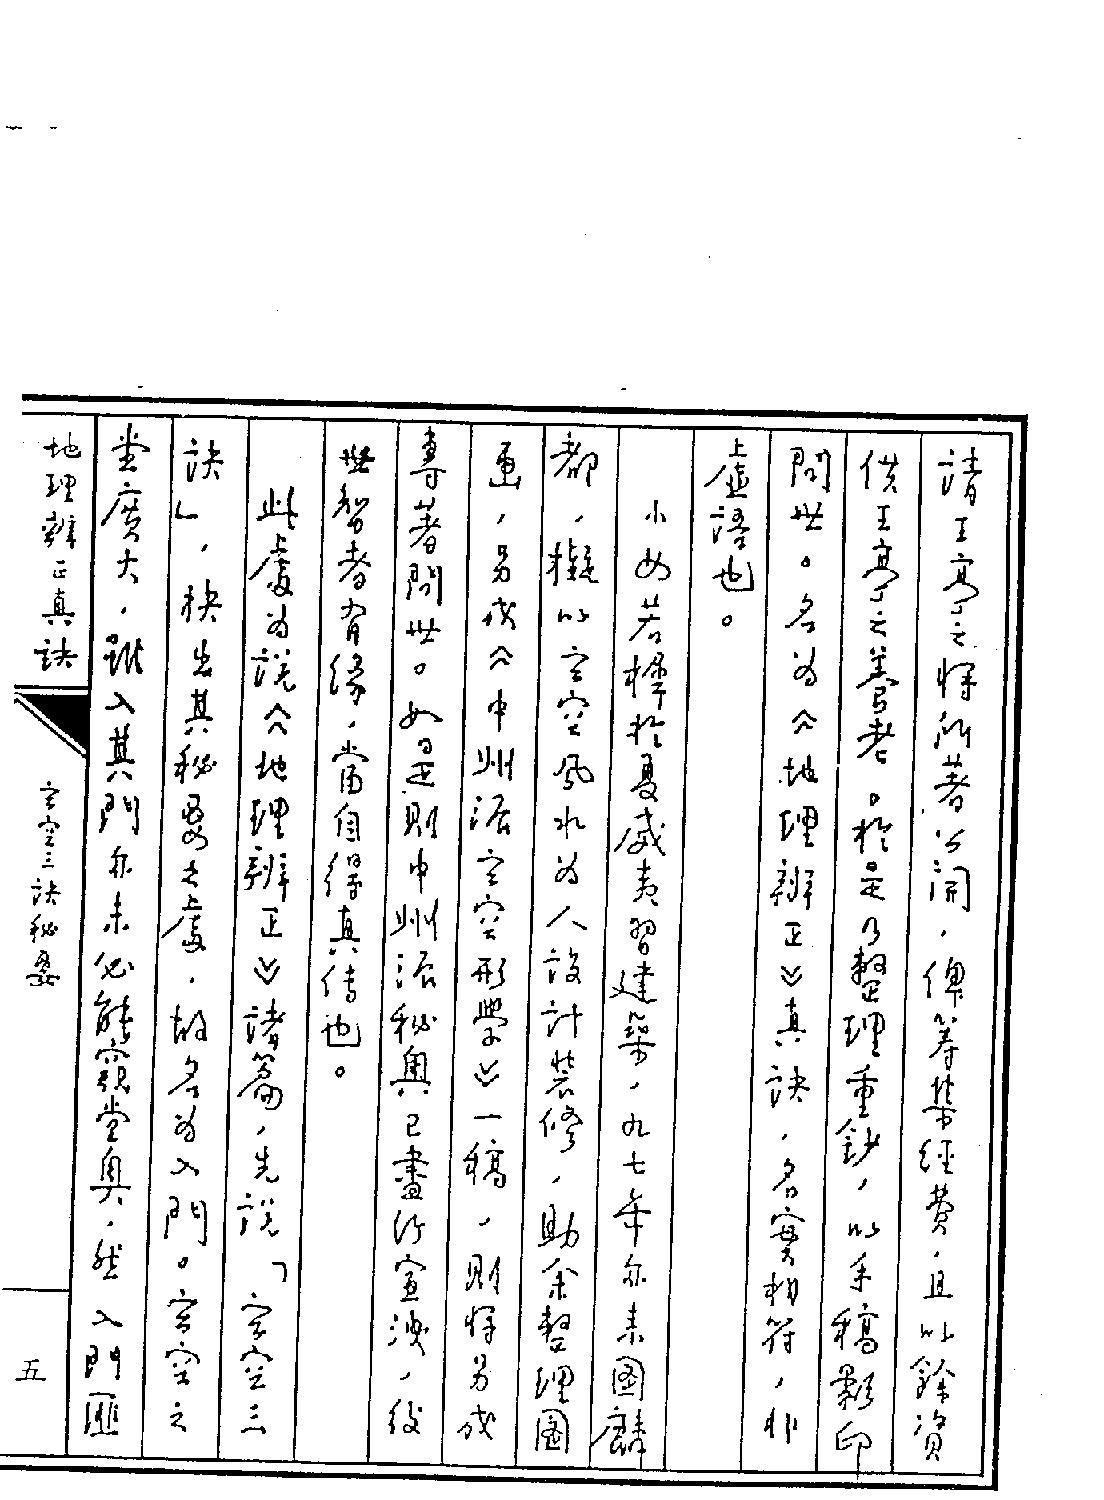 請王亭之將所著公開，俾籌集經費，且以餘資
供王亭之養老。於是乃整理重鈔，以手稿影印
問世。名為《地理辨正》真訣，名實相符，非
虛語也。
小女若樺於夏威夷習建築，九七年亦來圖麟
都，擬以玄空風水為人設計裝修，助余整理圖
画，另成《中州派玄空形學》一稿，則將另成
專著問世。如是則中州派秘奧已盡行宣洩，後
世智者有緣，當自得真傳也。
此處為說《地理辨正》諸篇，先說「玄空三
訣」，抉出其秘要之處，故名為入門。玄空之
堂廣大，雖入其門亦未必能窺堂奧，然入門匪
地理辨正真訣
玄空三訣秘要
五